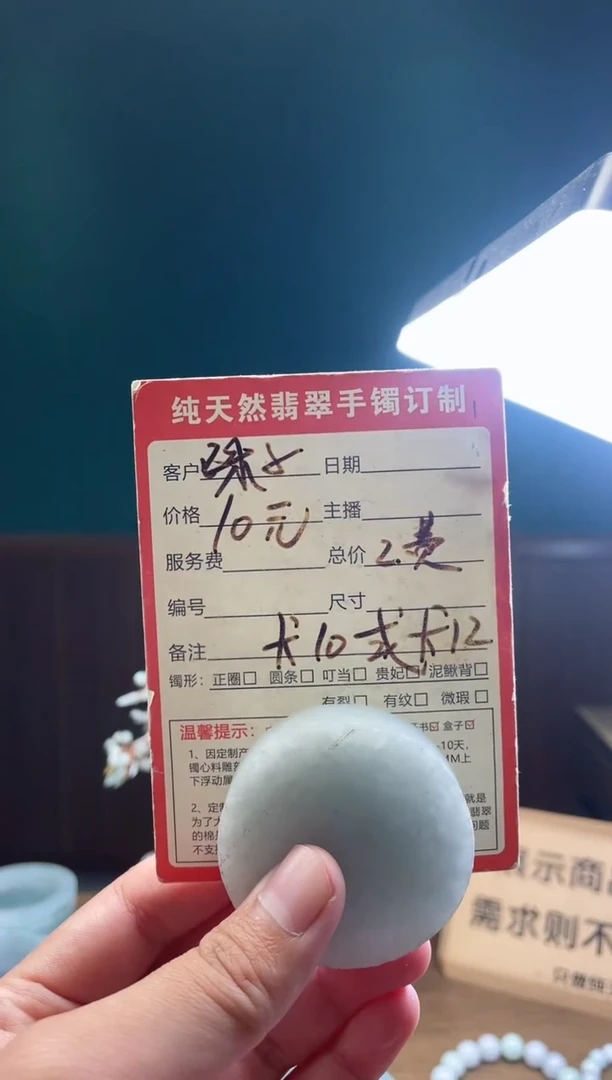 纯天然翡翠手镯订制
客户 日期
价格 10元 主播
服务费 总价
编号 尺寸
备注 卡10或卡12
镯形：正圈□ 圆条□ 叮当□ 贵妃□ 泥鳅背□
有裂□ 有纹□ 微瑕□
温馨提示： 证书☑ 盒子☑
1、因定制产 -10天，
镯心料雕 MM上
下浮动属
2、定 就是
为了 翡翠
的棉 问题
不支
展示商品
需求则不